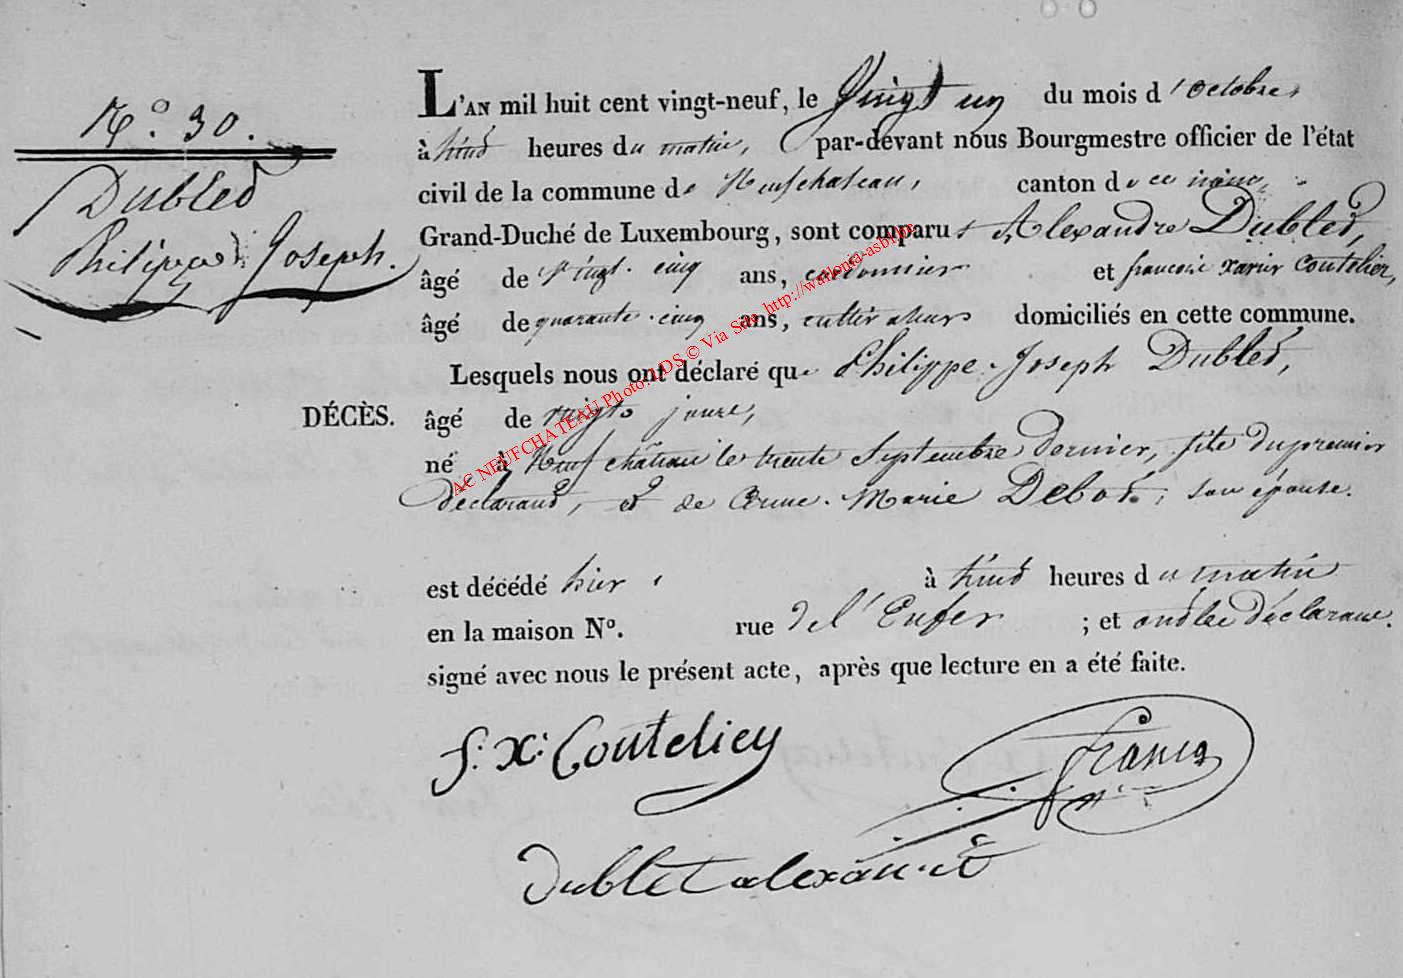 N.° 30.
Dubled
Philippe Joseph.
L'AN mil huit cent vingt-neuf, le Vingt un du mois d'Octobre
à huit heures du matin, par-devant nous Bourgmestre officier de l'état
civil de la commune de Neufchateau, canton de ce nom,
Grand-Duché de Luxembourg, sont comparus Alexandre Dubled,
âgé de Vingt-cinq ans, et françois xavier Coutelier,
âgé de quarante-cinq ans, cultivateurs domiciliés en cette commune.
Lesquels nous ont déclaré que Philippe-Joseph Dubled,
DÉCÈS. âgé de vingts jours,
né à Neufchâteau le trente Septembre dernier, fils du premier
déclarant, et de Anne-Marie Debot, son épouse.
est décédé hier, à huit heures du matin
en la maison N°. rue de l'Enfer ; et ont les déclarans
signé avec nous le présent acte, après que lecture en a été faite.
f. X: Coutelier
francq
Dublet alexandre
AC NEUFCHATEAU Photo: LDS © Via Site http://wallonia-asbl.be